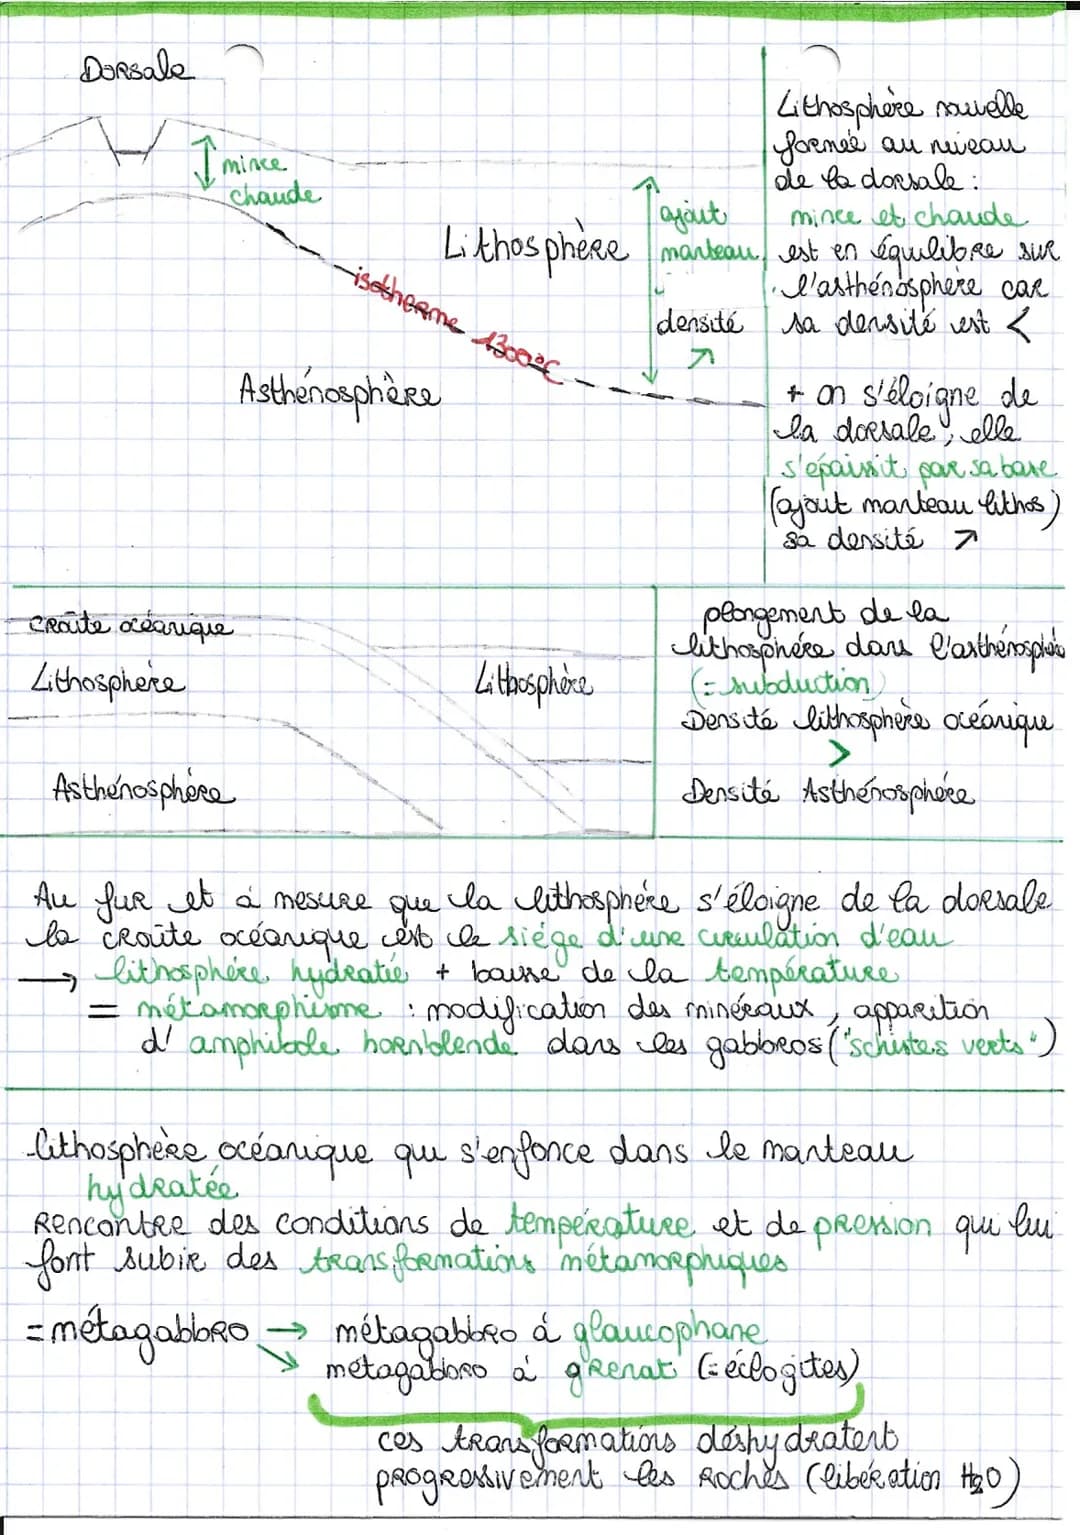 Dorsale
mince
chaude
Lithosphère
ajout
manteau
densité
↗
isotherme 1300°C
Asthénosphère
Lithosphère nouvelle
formée au niveau
de la dorsale :
mince et chaude
est en équilibre sur
l'asthénosphère car
sa densité est <
+ on s'éloigne de
la dorsale, elle
s'épaissit par sa base
(ajout manteau lithos)
sa densité ↗
croûte océanique
Lithosphère
Lithosphère
Asthénosphère
plongement de la
lithosphère dans l'asthénosphère
(= subduction)
Densité lithosphère océanique
>
Densité Asthénosphère
Au fur et à mesure que la lithosphère s'éloigne de la dorsale
la croûte océanique est le siège d'une circulation d'eau
→ lithosphère hydratée + baisse de la température
= métamorphisme : modification des minéraux, apparition
d'amphibole hornblende dans les gabbros ("schistes verts")
lithosphère océanique qui s'enfonce dans le manteau
hydratée
Rencontre des conditions de température et de pression qui lui
font subir des transformations métamorphiques
= métagabbro → métagabbro à glaucophane
↘ métagabbro à grenat (= éclogites)
ces transformations déshydratent
progressivement les roches (libération H2O)